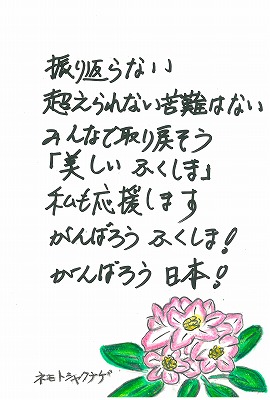 振り返らない
超えられない苦難はない
みんなで取り戻そう
「美しいふくしま」
私も応援します
がんばろう ふくしま!
がんばろう 日本!
ネモトシャクナゲ